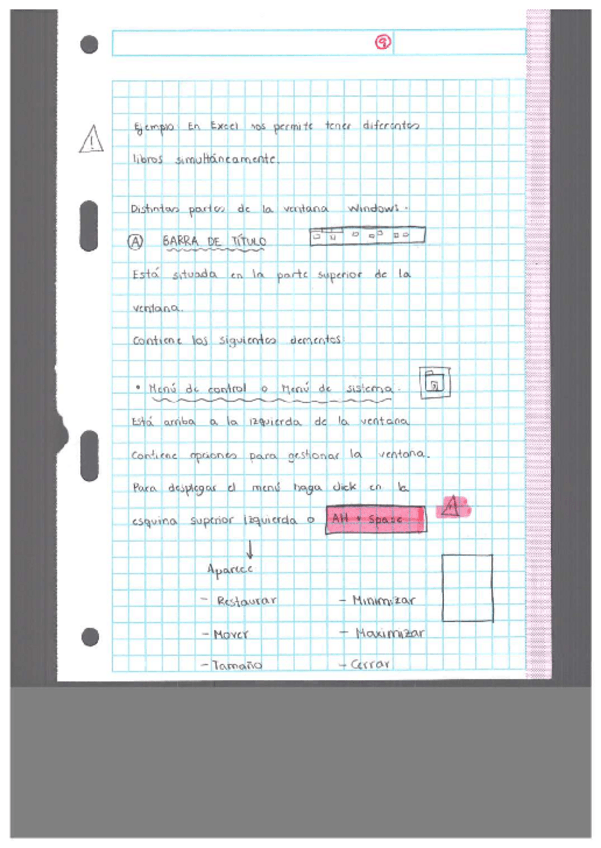 9
Ejemplo En Excel nos permite tener diferentes
libros simultáneamente.
Distintas partes de la ventana Windows.
A BARRA DE TÍTULO
Está situada en la parte superior de la
ventana.
Contiene los siguientes elementos
• Menú de control o Menú de sistema.
Está arriba a la izquierda de la ventana
Contiene opciones para gestionar la ventana.
Para desplegar el menú haga click en la
esquina superior izquierda o Alt + Space
Aparece
- Restaurar - Minimizar
- Mover - Maximizar
- Tamaño - Cerrar